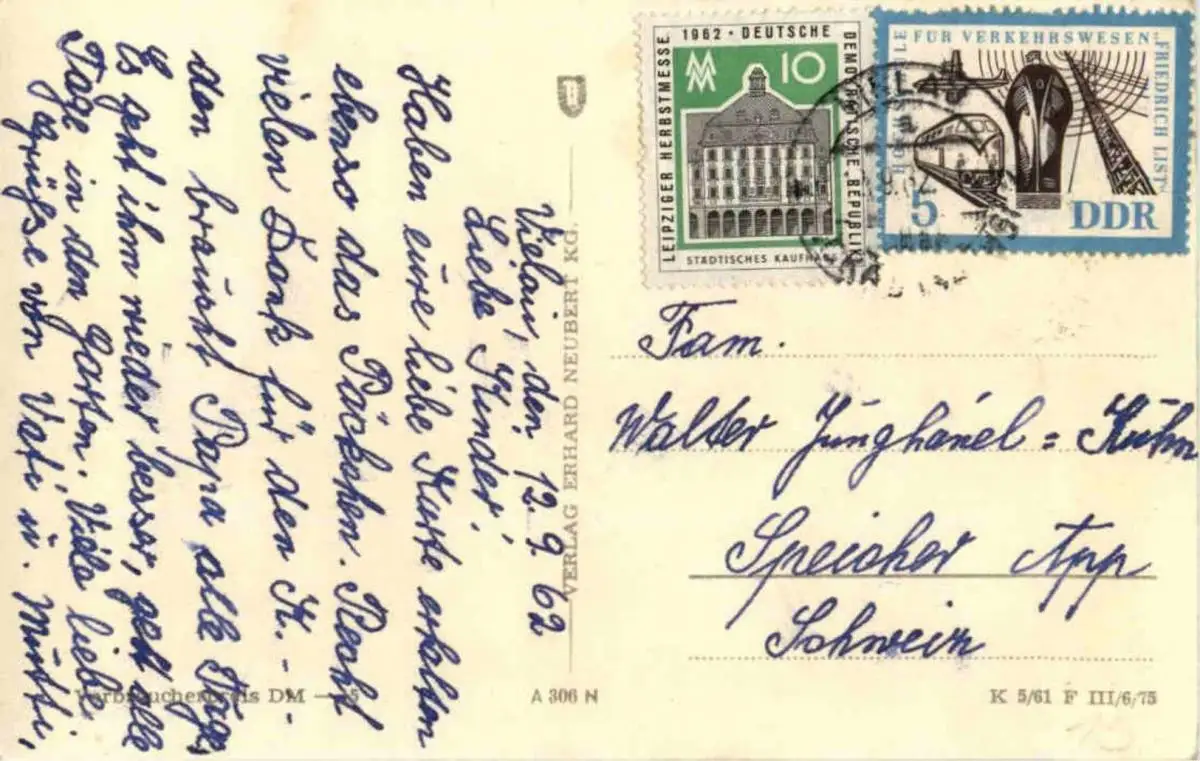 Vielau, den 12.9.62
Liebe Kinder!
Haben eure liebe Karte erhalten
ebenso das Päckchen. Recht
vielen Dank für den K. - -
den braucht Papa alle Tage,
Es geht ihm wieder besser, geht alle
Tage in den Garten. Viele liebe
grüsse von Vati u. Mutti,
VERLAG ERHARD NEUBERT KG.
LEIPZIGER HERBSTMESSE 1962 · DEUTSCHE DEMOKRATISCHE REPUBLIK
MM 10
STÄDTISCHES KAUFHAUS
HOCHSCHULE FÜR VERKEHRSWESEN „FRIEDRICH LIST“
5
DDR
Fam.
Walter Junghänel = Kuhn
Speicher App
Schweiz
Verbraucherpreis DM
A 306 N
K 5/61 F III/6/75